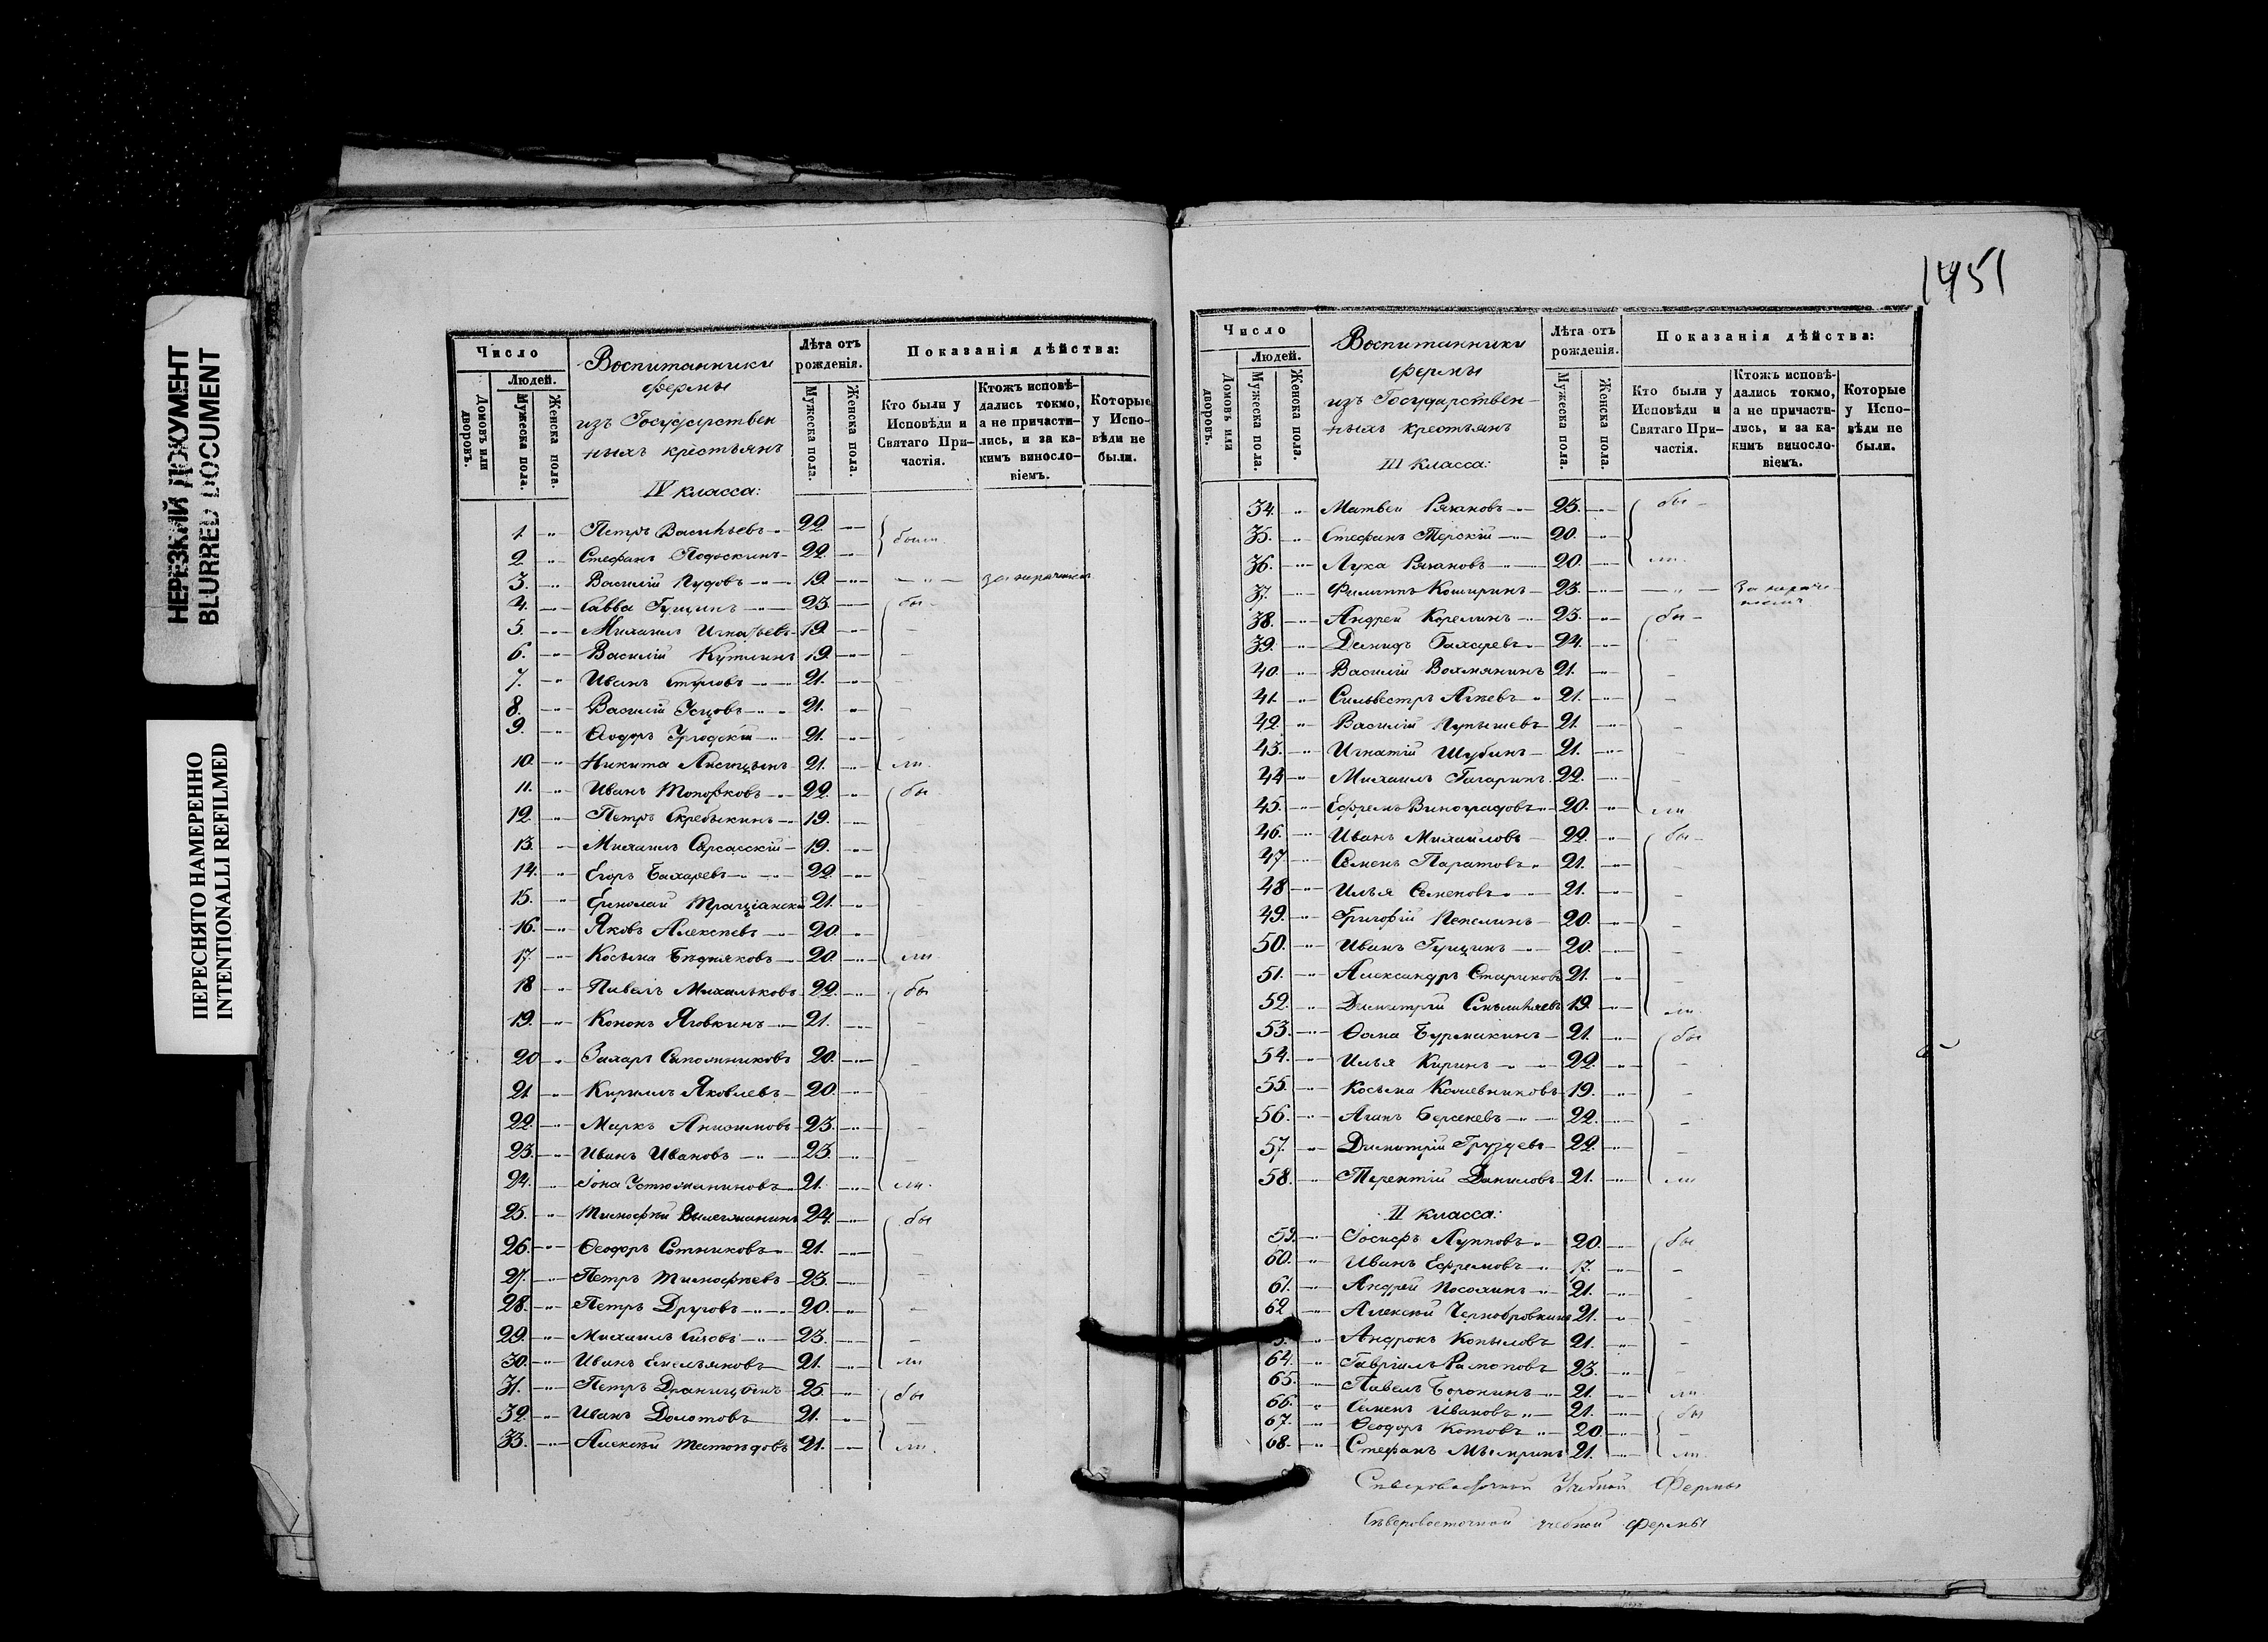 НЕРЕЗКИЙ ДОКУМЕНТ
BLURRED DOCUMENT
ПЕРЕСНЯТО НАМЕРЕННО
INTENTIONALLI REFILMED
Число
Людей.
Домовъ или дворовъ.
Мужеска пола.
Женска пола.
Воспитанники
фермы
изъ Государствен
ныхъ крестьянъ
IV класса:
Лѣта отъ рожденія.
Мужеска пола.
Женска пола.
Показанія дѣйства:
Кто были у Исповѣди и Святаго Причастія.
Ктожъ исповѣдались токмо, а не причастились, и за какимъ винословіемъ.
Которые у Исповѣди не были.
1. Петръ Васильевъ 22. были
2. Стефанъ 22.
3. Василій Пудовъ 19.
4. Савва Гущинъ 23. бы
5. Михаилъ Игнатьевъ 19.
6. Василій Кутлинъ 19.
7. Иванъ 21.
8. Василій Усцовъ 21.
9. Ѳеодоръ 21.
10. Никита Лисицынъ 21. ли.
11. Иванъ Топорковъ 22. бы
12. Петръ Скребыкинъ 19.
13. Михаилъ Сарсасскій 19.
14. Егоръ Бахаревъ 22.
15. 21.
16. Яковъ Алексѣевъ 20.
17. Косьма Бѣдняковъ 20. ли.
18. Павелъ Михальковъ 22. бы
19. Кононъ Яговкинъ 21.
20. Захаръ Сапожниковъ 20.
21. Кириллъ Яковлевъ 20.
22. Маркъ Анисимовъ 23.
23. Иванъ Ивановъ 23.
24. Іона Устюжаниновъ 21. ли.
25. Тимофей 24. бы
26. Ѳеодоръ Сотниковъ 21.
27. Петръ Тимофѣевъ 23.
28. Петръ Друговъ 20.
29. Михаилъ Сизовъ 23.
30. Иванъ Емельяновъ 21. ли
31. Петръ Драницынъ 25. бы
32. Иванъ Долотовъ 21.
33. Алексѣй 21. ли.
1451
Число
Людей.
Домовъ или дворовъ.
Мужеска пола.
Женска пола.
Воспитанники
фермы
изъ Государствен-
ныхъ крестьянъ
III класса:
Лѣта отъ рожденія.
Мужеска пола.
Женска пола.
Показанія дѣйства:
Кто были у Исповѣди и Святаго Причастія.
Ктожъ исповѣдались токмо, а не причастились, и за какимъ винословіемъ.
Которые у Исповѣди не были.
34. Матвей Рязановъ 23. бы
35. Стефанъ Терскій 20.
36. Лука Рязановъ 20. ли.
37. Филиппъ Коширинъ 23.
38. Андрей Корелинъ 23. бы
39. Демидъ Бахаревъ 24.
40. Василій Вохмянинъ 21.
41. Сильвестръ Агѣевъ 21.
42. Василій Лупышевъ 21.
43. Игнатій Шубинъ 21.
44. Михаилъ Гагаринъ 22.
45. Ефремъ Виноградовъ 20. ли
46. Иванъ Михаиловъ 22. бы
47. Семенъ Паратовъ 21.
48. Илья Семеновъ 21.
49. Григорій Пепелинъ 20.
50. Иванъ Гущинъ 20.
51. Александръ Стариковъ 21.
52. Димитрій 19. ли.
53. Ѳома Бурмакинъ 21. бы
54. Илья Киринъ 22.
55. Косьма Кожевниковъ 19.
56. Агапъ Берсеневъ 22.
57. Димитрій Груздевъ 22.
58. Терентій Даниловъ 21. ли
II класса:
59. Іосифъ Лупповъ 20. бы
60. Иванъ Ефремовъ 17.
61. Андрей Посохинъ 21.
62. Алексѣй Чернобровкинъ 21.
Андронъ Копыловъ 21.
64. Гавріилъ 23.
65. Павелъ Боронинъ 21. ли.
66. Семенъ Ивановъ 21. бы
67. Ѳеодоръ Котовъ 20.
68. Стефанъ 21. ли.
Сѣверовосточной Учебной Фермы
Сѣверовосточной учебной Фермы